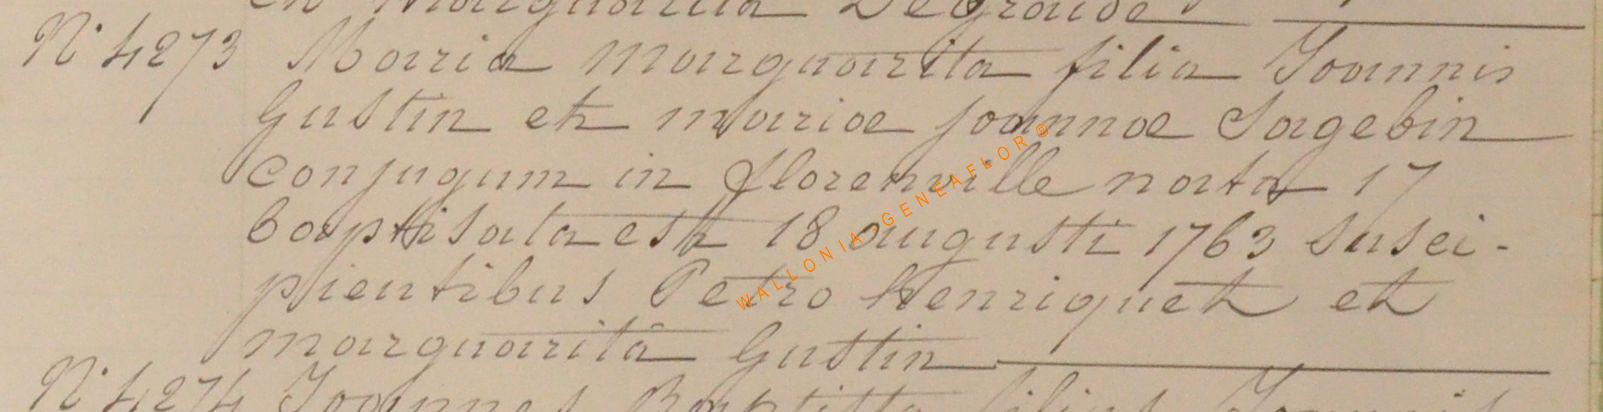 en Marguarita Degroude
N° 4273 Maria Marguarita filia Joannis
Gustin et mariae joannae Sagebin
conjugum in florenville nata 17
baptisata est 18 augusti 1763 susci-
pientibus Petro henriquet et
marguaritâ Gustin
N° 4274 Joannes Baptista filius Joannis
WALLONIA-GENEAFLOR©